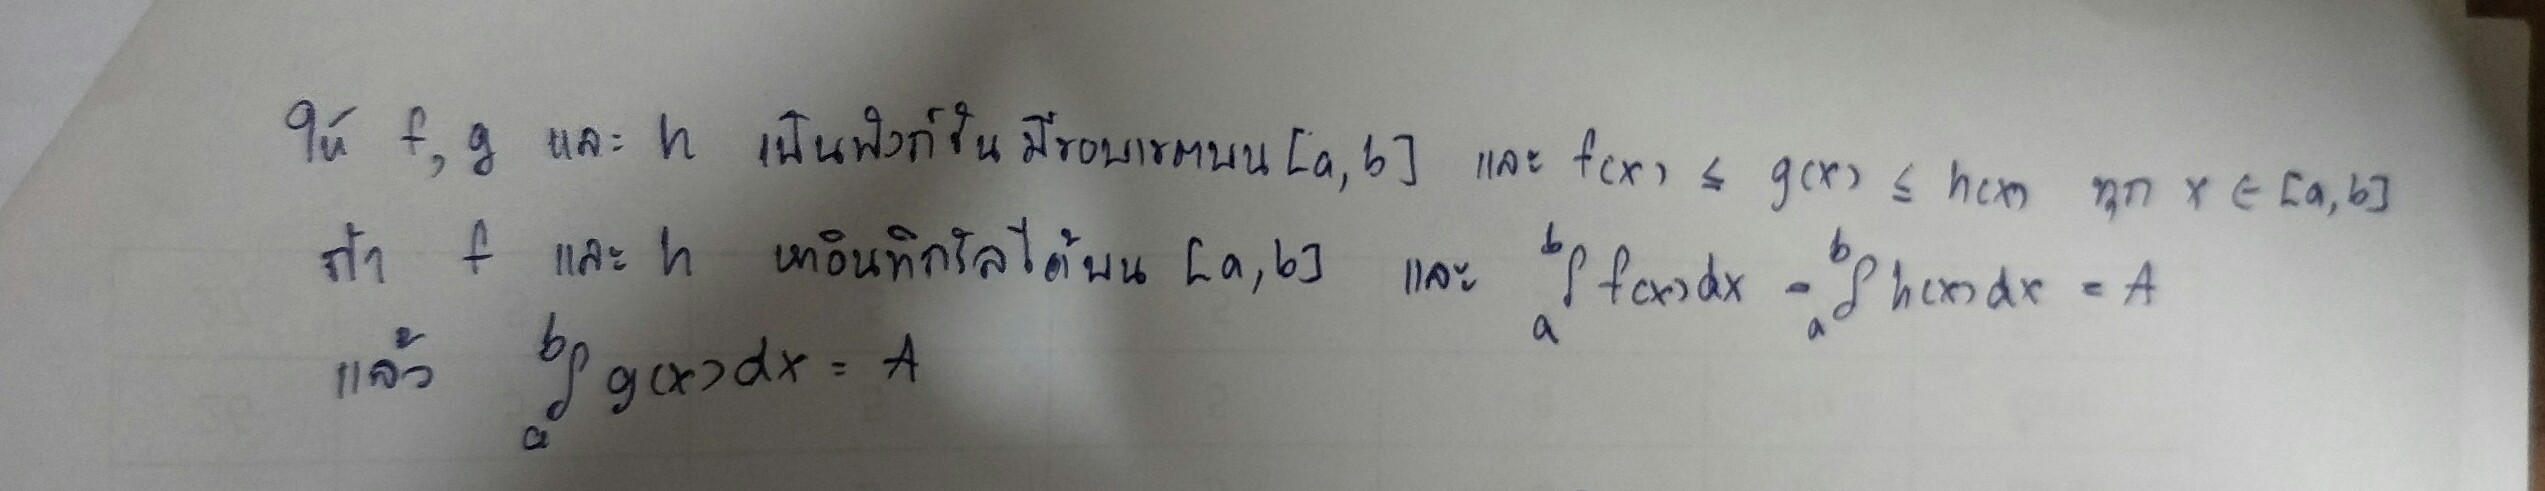 ให้ f, g และ h เป็นฟังก์ชันมีขอบเขตบน [a, b] และ f(x) ≤ g(x) ≤ h(x) ทุก x ∈ [a, b]
ถ้า f และ h หาอินทิกรัลได้บน [a, b] และ ₐ∫ᵇ f(x) dx = ₐ∫ᵇ h(x) dx = A
แล้ว ₐ∫ᵇ g(x) dx = A